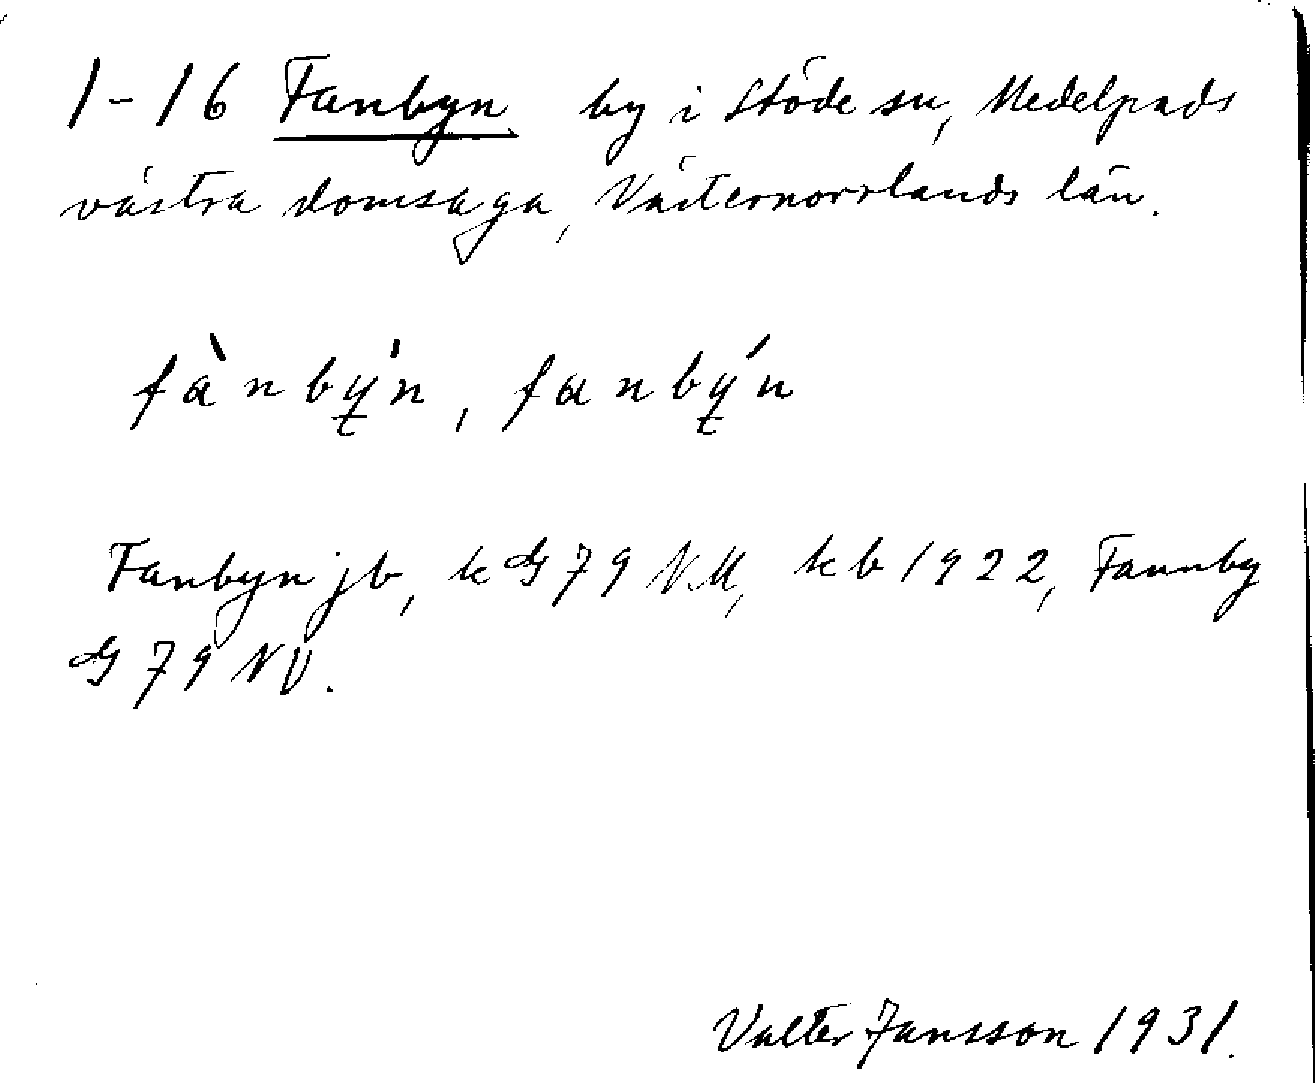 1-16 Fanbyn by i Stöde sn, Medelpads
västra domsaga, Västernorrlands län.
fànby̨'n, fanbý̨n
Fanbyn jb, k G 79 NM, kb 1922, Fannby
G 79 NV.
Valter Jansson 1931.